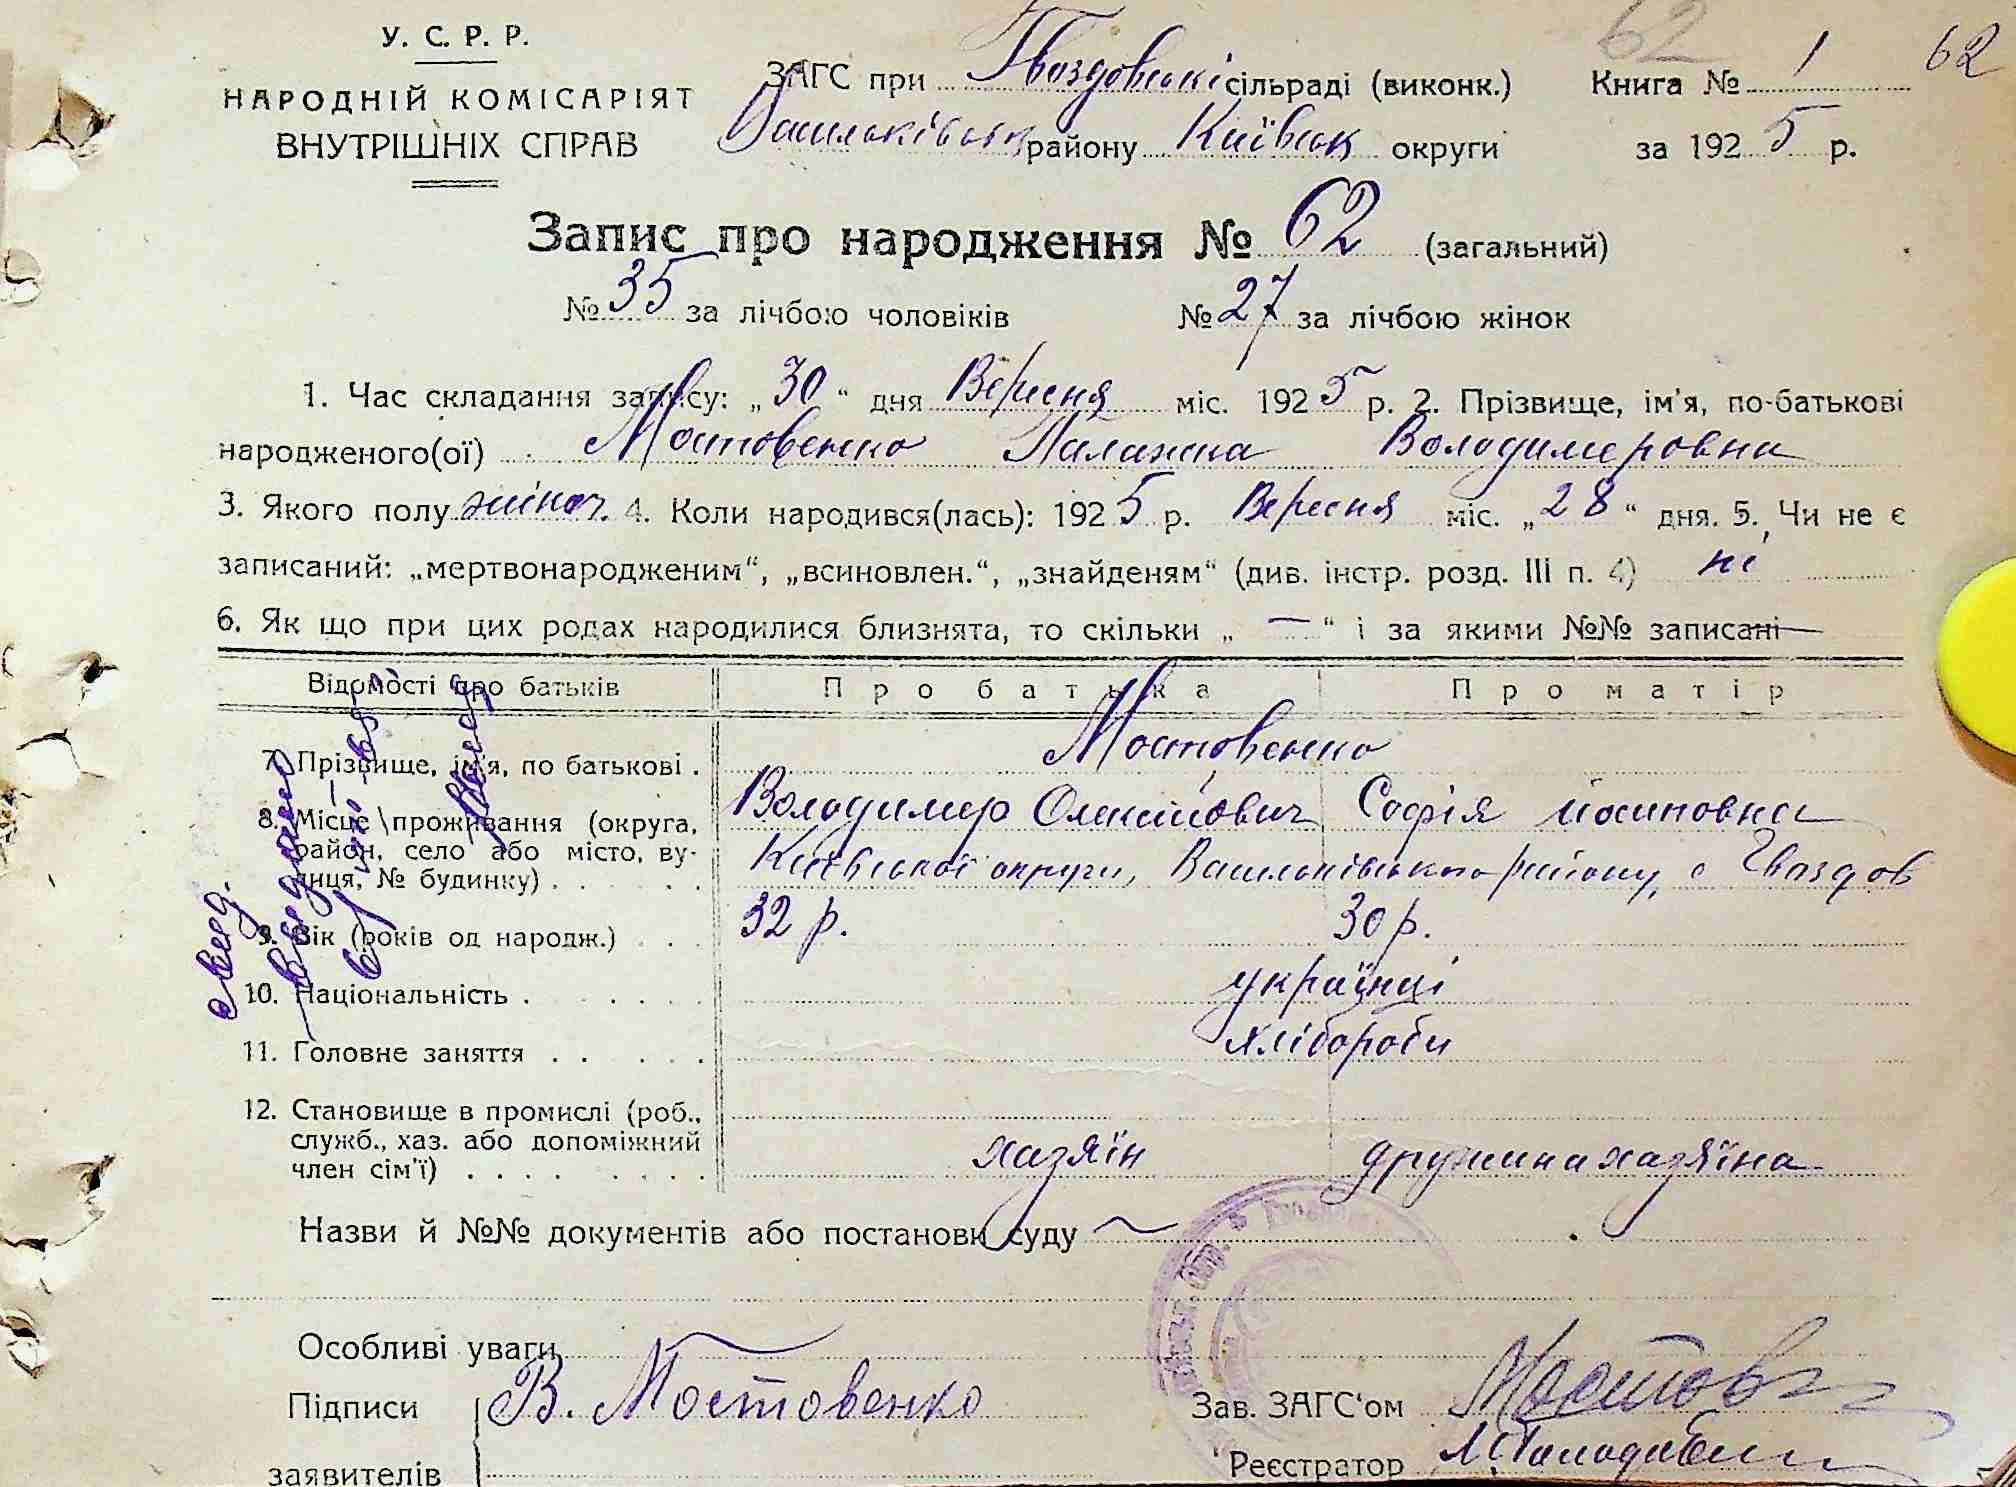 62
У. С. Р. Р.
НАРОДНІЙ КОМІСАРІЯТ
ВНУТРІШНІХ СПРАВ
ЗАГС при Гвоздовські сільраді (виконк.) Книга № 1 62
Васильківськ району Київськ округи за 1925 р.
Запис про народження № 62 (загальний)
№ 35 за лічбою чоловіків № 27 за лічбою жінок
1. Час складання запису: „30“ дня Вересня міс. 1925 р. 2. Прізвище, ім'я, по-батькові
народженого(ої) Мостовенко Палажка Володимеровна
3. Якого полу жіноч. 4. Коли народився(лась): 1925 р. Вересня міс. „28“ дня. 5. Чи не є
записаний: „мертвонародженим“, „всиновлен.“, „знайденям“ (див. інстр. розд. III п. 4) ні
6. Як що при цих родах народилися близнята, то скільки „—“ і за якими №№ записані —
Відомості про батьків Про батька Про матір
7. Прізвище, ім'я, по батькові . Мостовенко
Володимер Олексійович Софія Йосиповна
8. Місце проживання (округа,
район, село або місто, ву-
лиця, № будинку) . . . . . Київської округи, Васильківського району, с Гвоздов
9. Вік (років од народж.) . . . 32 р. 30 р.
10. Національність . . . . . . українці
11. Головне заняття . . . . . хлібороби
12. Становище в промислі (роб.,
служб., хаз. або допоміжний
член сім'ї) . . . . . . . . хазяїн дружина хазяїна
Назви й №№ документів або постанови суду —
Особливі уваги
Підписи В. Мостовенко Зав. ЗАГС'ом
заявителів Реєстратор